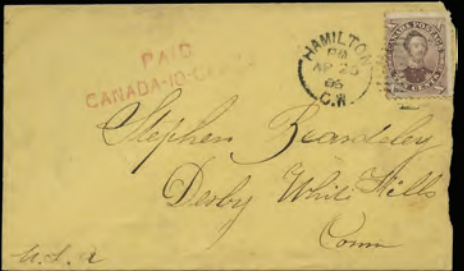 PAID
CANADA-10-C
HAMILTON
PM
AP 25
65
C.W.
CANADA POSTAGE
TEN CENTS
Stephen Beardsley
Derby White Hills
Conn
U.S.A